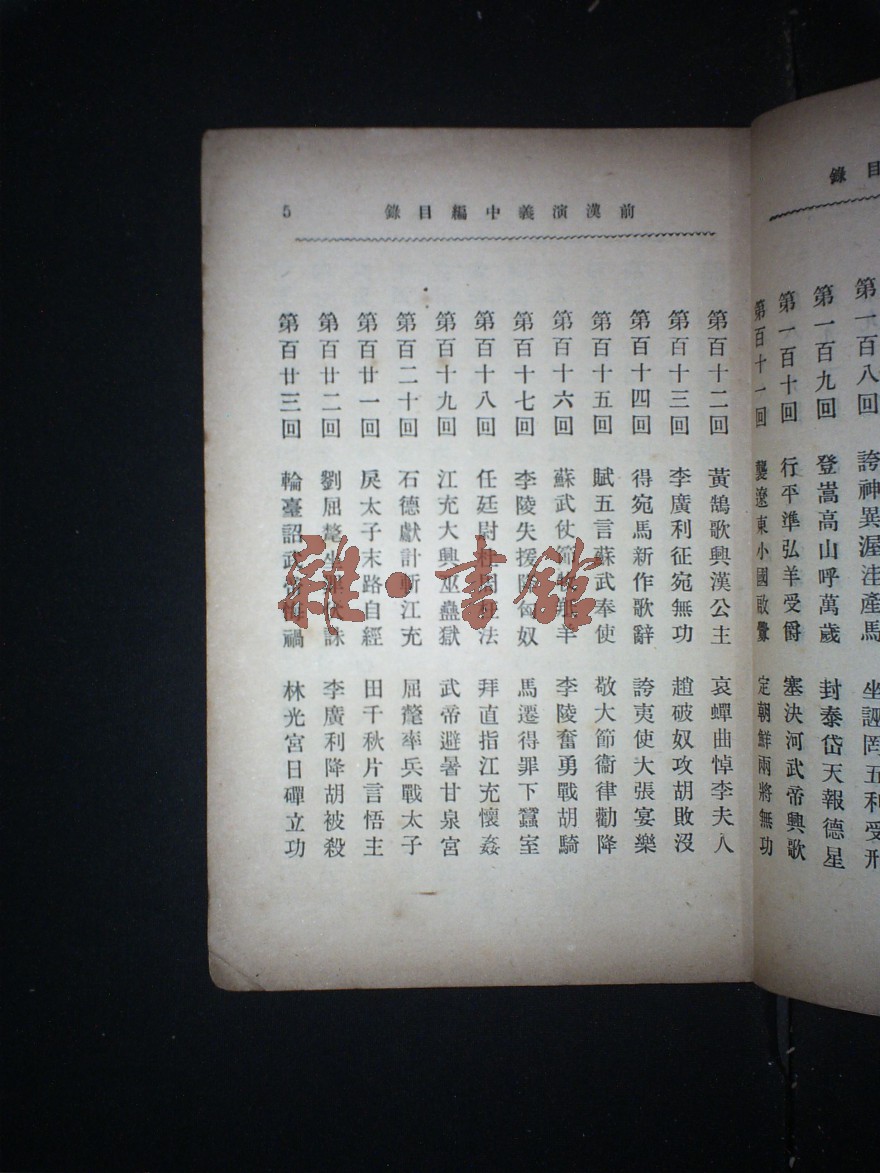 錄目
第一百八回 誇神異渥洼產馬 坐誣罔五利受刑
第一百九回 登嵩高山呼萬歲 封泰岱天報德星
第一百十回 行平準弘羊受爵 塞決河武帝興歌
第百十一回 襲遼東小國啟釁 定朝鮮兩將無功
前漢演義中編目錄 5
第百十二回 黃鵠歌興漢公主 哀蟬曲悼李夫人
第百十三回 李廣利征宛無功 趙破奴攻胡敗沒
第百十四回 得宛馬新作歌辭 誇夷使大張宴樂
第百十五回 賦五言蘇武奉使 敬大節衞律勸降
第百十六回 蘇武仗節牧羝羊 李陵奮勇戰胡騎
第百十七回 李陵失援降匈奴 馬遷得罪下蠶室
第百十八回 任廷尉杜周玩法 拜直指江充懷姦
第百十九回 江充大興巫蠱獄 武帝避暑甘泉宮
第百二十回 石德獻計斬江充 屈氂率兵戰太子
第百廿一回 戾太子末路自經 田千秋片言悟主
第百廿二回 劉屈氂坐罪伏誅 李廣利降胡被殺
第百廿三回 輪臺詔武帝悔禍 林光宮日磾立功
雜·書館